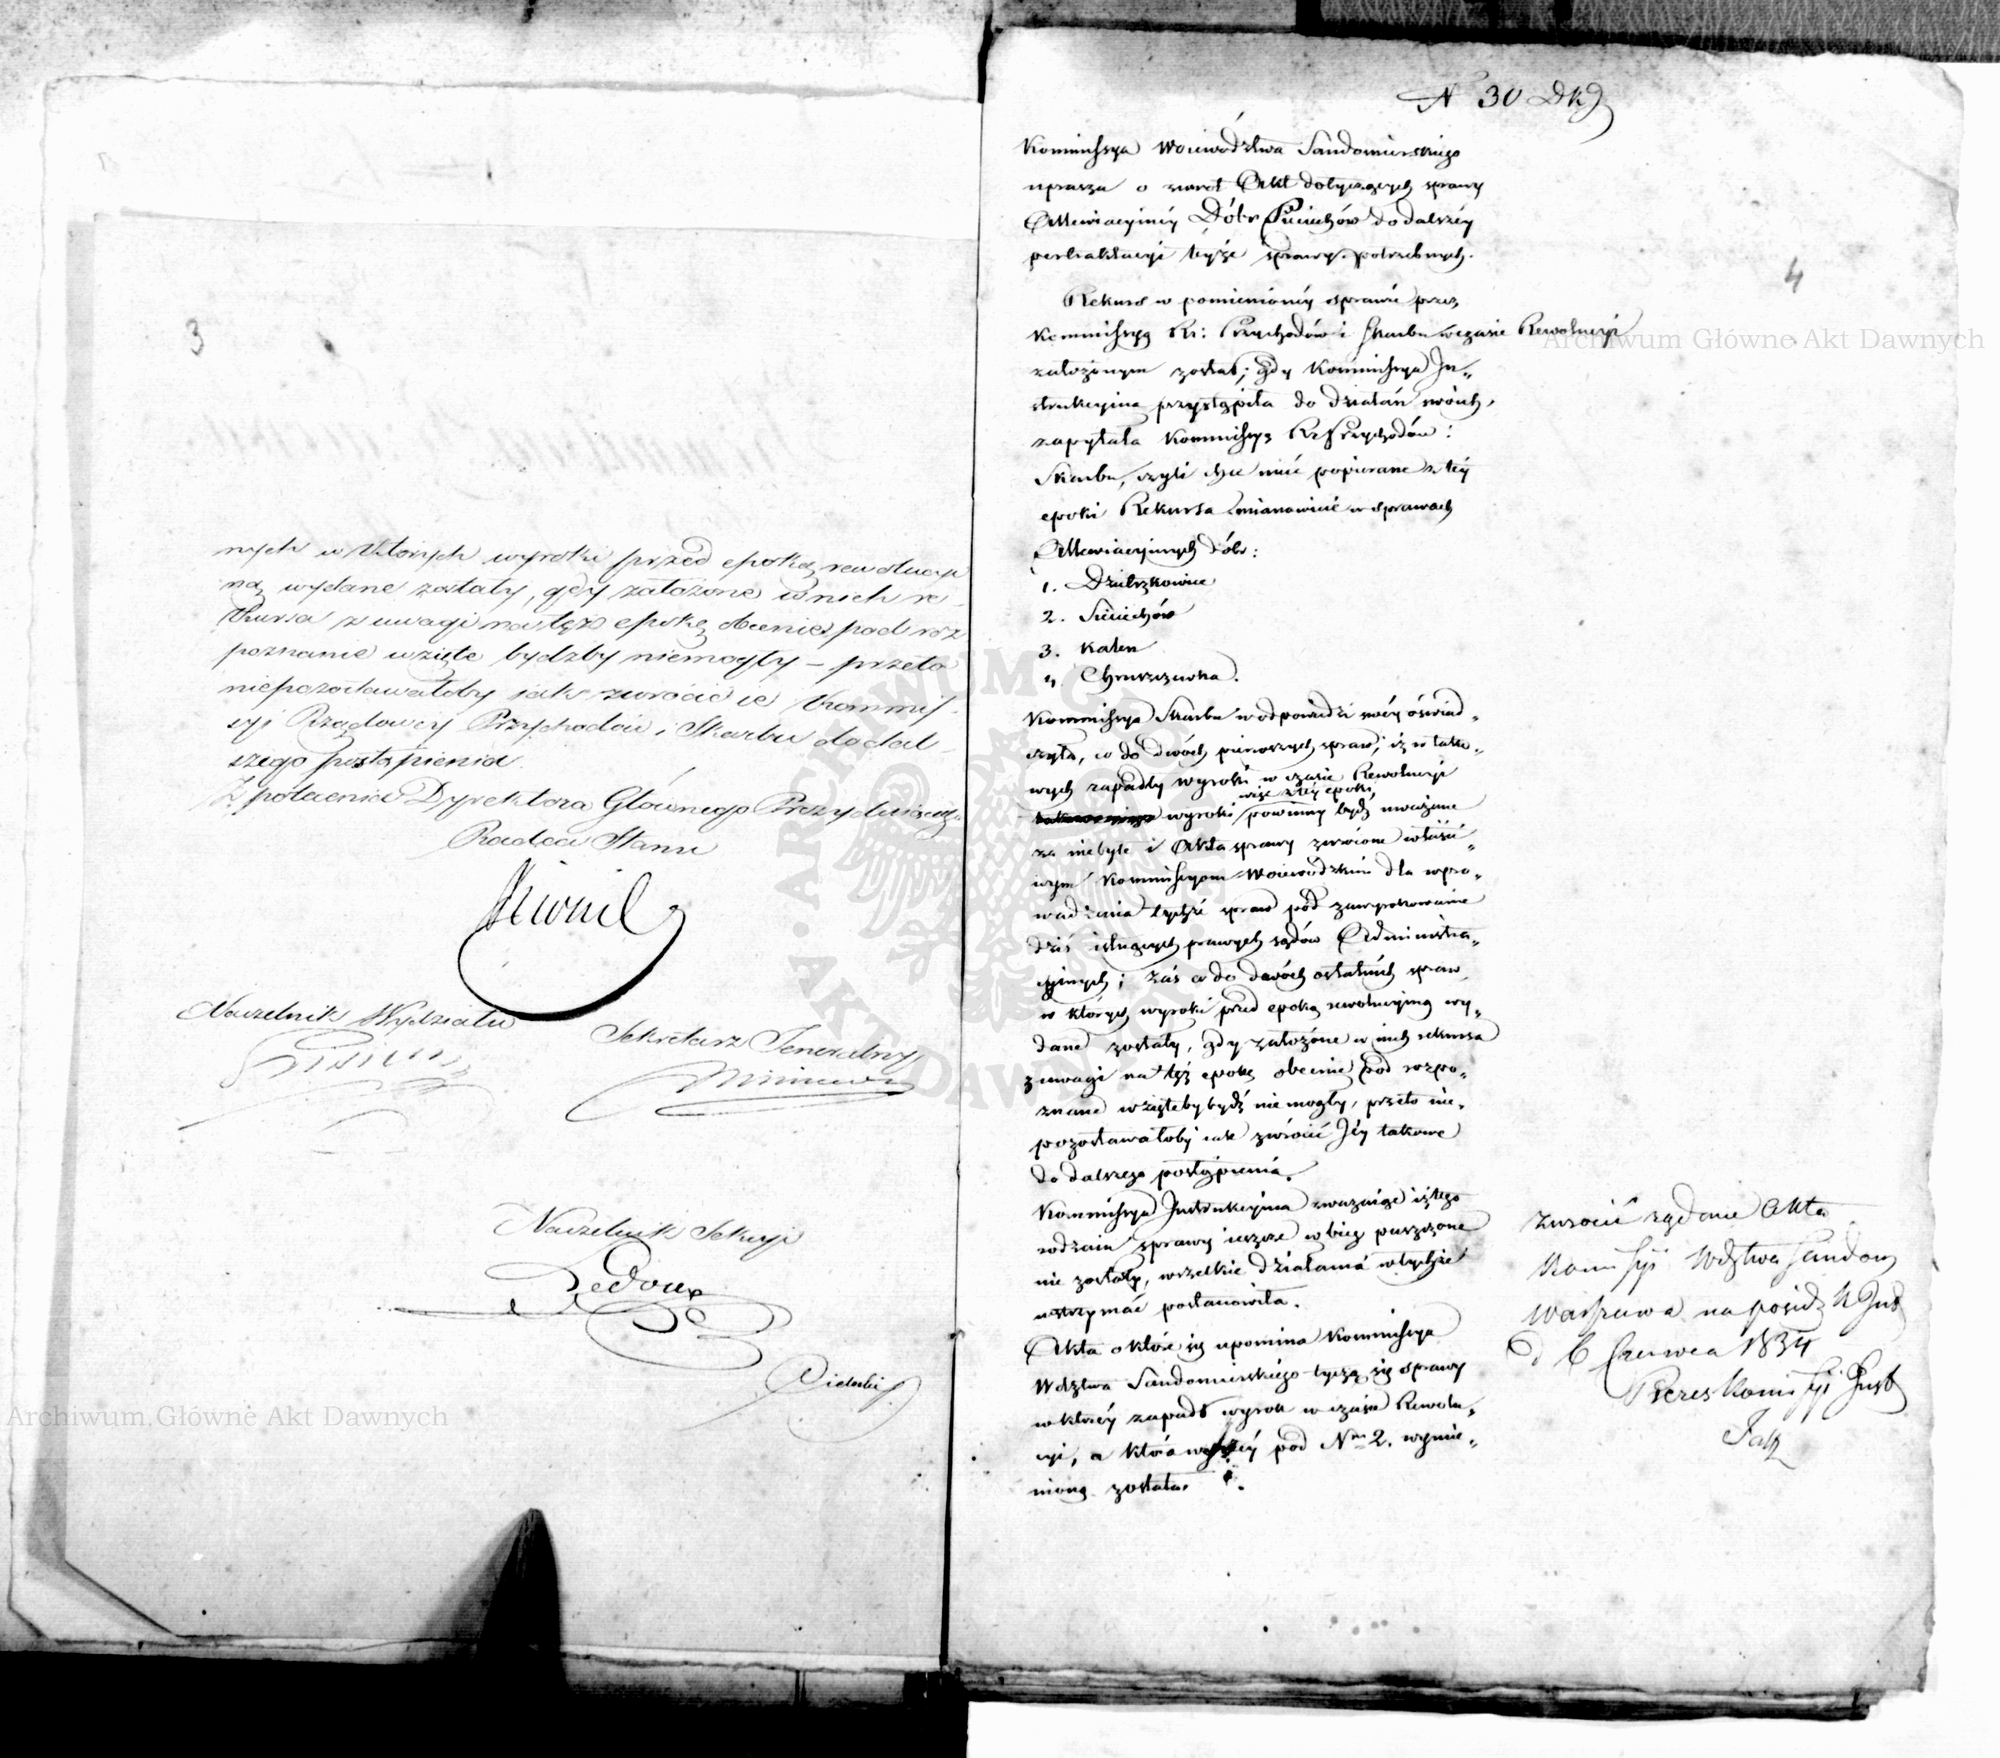 3
nych w których wyroki przed epoką rewolucyi
ną wydane zostały, gdy założone w nich re
kursa z uwagi na tęż epokę obecnie pod roz
poznanie wzięte bydźby niemogły – przeto
niepozostawałoby iak zwrócić ie Kommis
syi Rządowey Przychodów i Skarbu do dal
szego postąpienia.
Z polecenia Dyrektora Głównego Prezyduiącego
Radca Stanu
Naczelnik Wydziału
Sekretarz Jeneralny
Naczelnik Sekcyi
Ledoux
N 30 Dkg
4
Kommissya Woiewództwa Sandomierskiego
uprasza o zwrot Akt dotyczących sprawy
Allewiacyinéy Dóbr Sieciechów do dalszéy
pertraktacyi teyże sprawy potrzebnych.
Rekurs w pomienionéy sprawie przez
Kommissyą Rz: Przychodów i Skarbu w czasie Rewolucyi
założonym został; gdy Kommissya In„
strukcyina przystąpiła do działań swoich,
zapytała Kommissyą Rz Przychodów i
Skarbu, czyli chce mieć popierane z téy
epoki Rekursa mianowicie w sprawach
Allewiacyinych dóbr:
1. Dzierzkowice
2. Sieciechów
3. Kalen
4 Chruszczewka.
Kommissya Skarbu w odpowiedzi swéy oświad„
czyła, co do dwóch pierwszych spraw, iż w tako„
wych zapadły wyroki w czasie Rewolucyi
więc z téy epoki
wyroki powinny bydź uważane
za niebyłe i Akta sprawy zwrócone właści„
wym Kommissyom Woiewódzkim dla wpro„
wadzenia tychże spraw pod zawyrokowanie
dziś istnących prawych sądów Administra„
cyinych; zaś co do dwóch ostatnich spraw
w których wyroki przed epoką rewolucyiną wy„
dane zostały, gdy założone w nich rekursa
z uwagi na tęż epokę obecnie pod rozpo„
znanie wzięteby bydź nie mogły, przeto nie„
pozostawałoby iak zwrócić Jéy takowe
do dalszego postąpienia.
Kommissya Instrukcyina zważaiąc iż tego
rodzaiu sprawy ieszcze w bieg puszczone
nie zostały, wszelkie działania w tychże
wstrzymać postanowiła.
Akta o które się upomina Kommissya
Wdztwa Sandomierskiego tyczą się sprawy
w któréy zapadł wyrok w czasie Rewolu„
cyi, a która wyżéy pod Nm 2. wymie„
nioną została.
Zwrócić żądane Akta
Kommissyi Wdztwa Sandom
Warszawa na posiedz K Inst
d 6 Czerwca 1834
Prezes Kommissyi Inst
Archiwum Główne Akt Dawnych
Archiwum Główne Akt Dawnych
ARCHIWUM GŁÓWNE AKT DAWNYCH